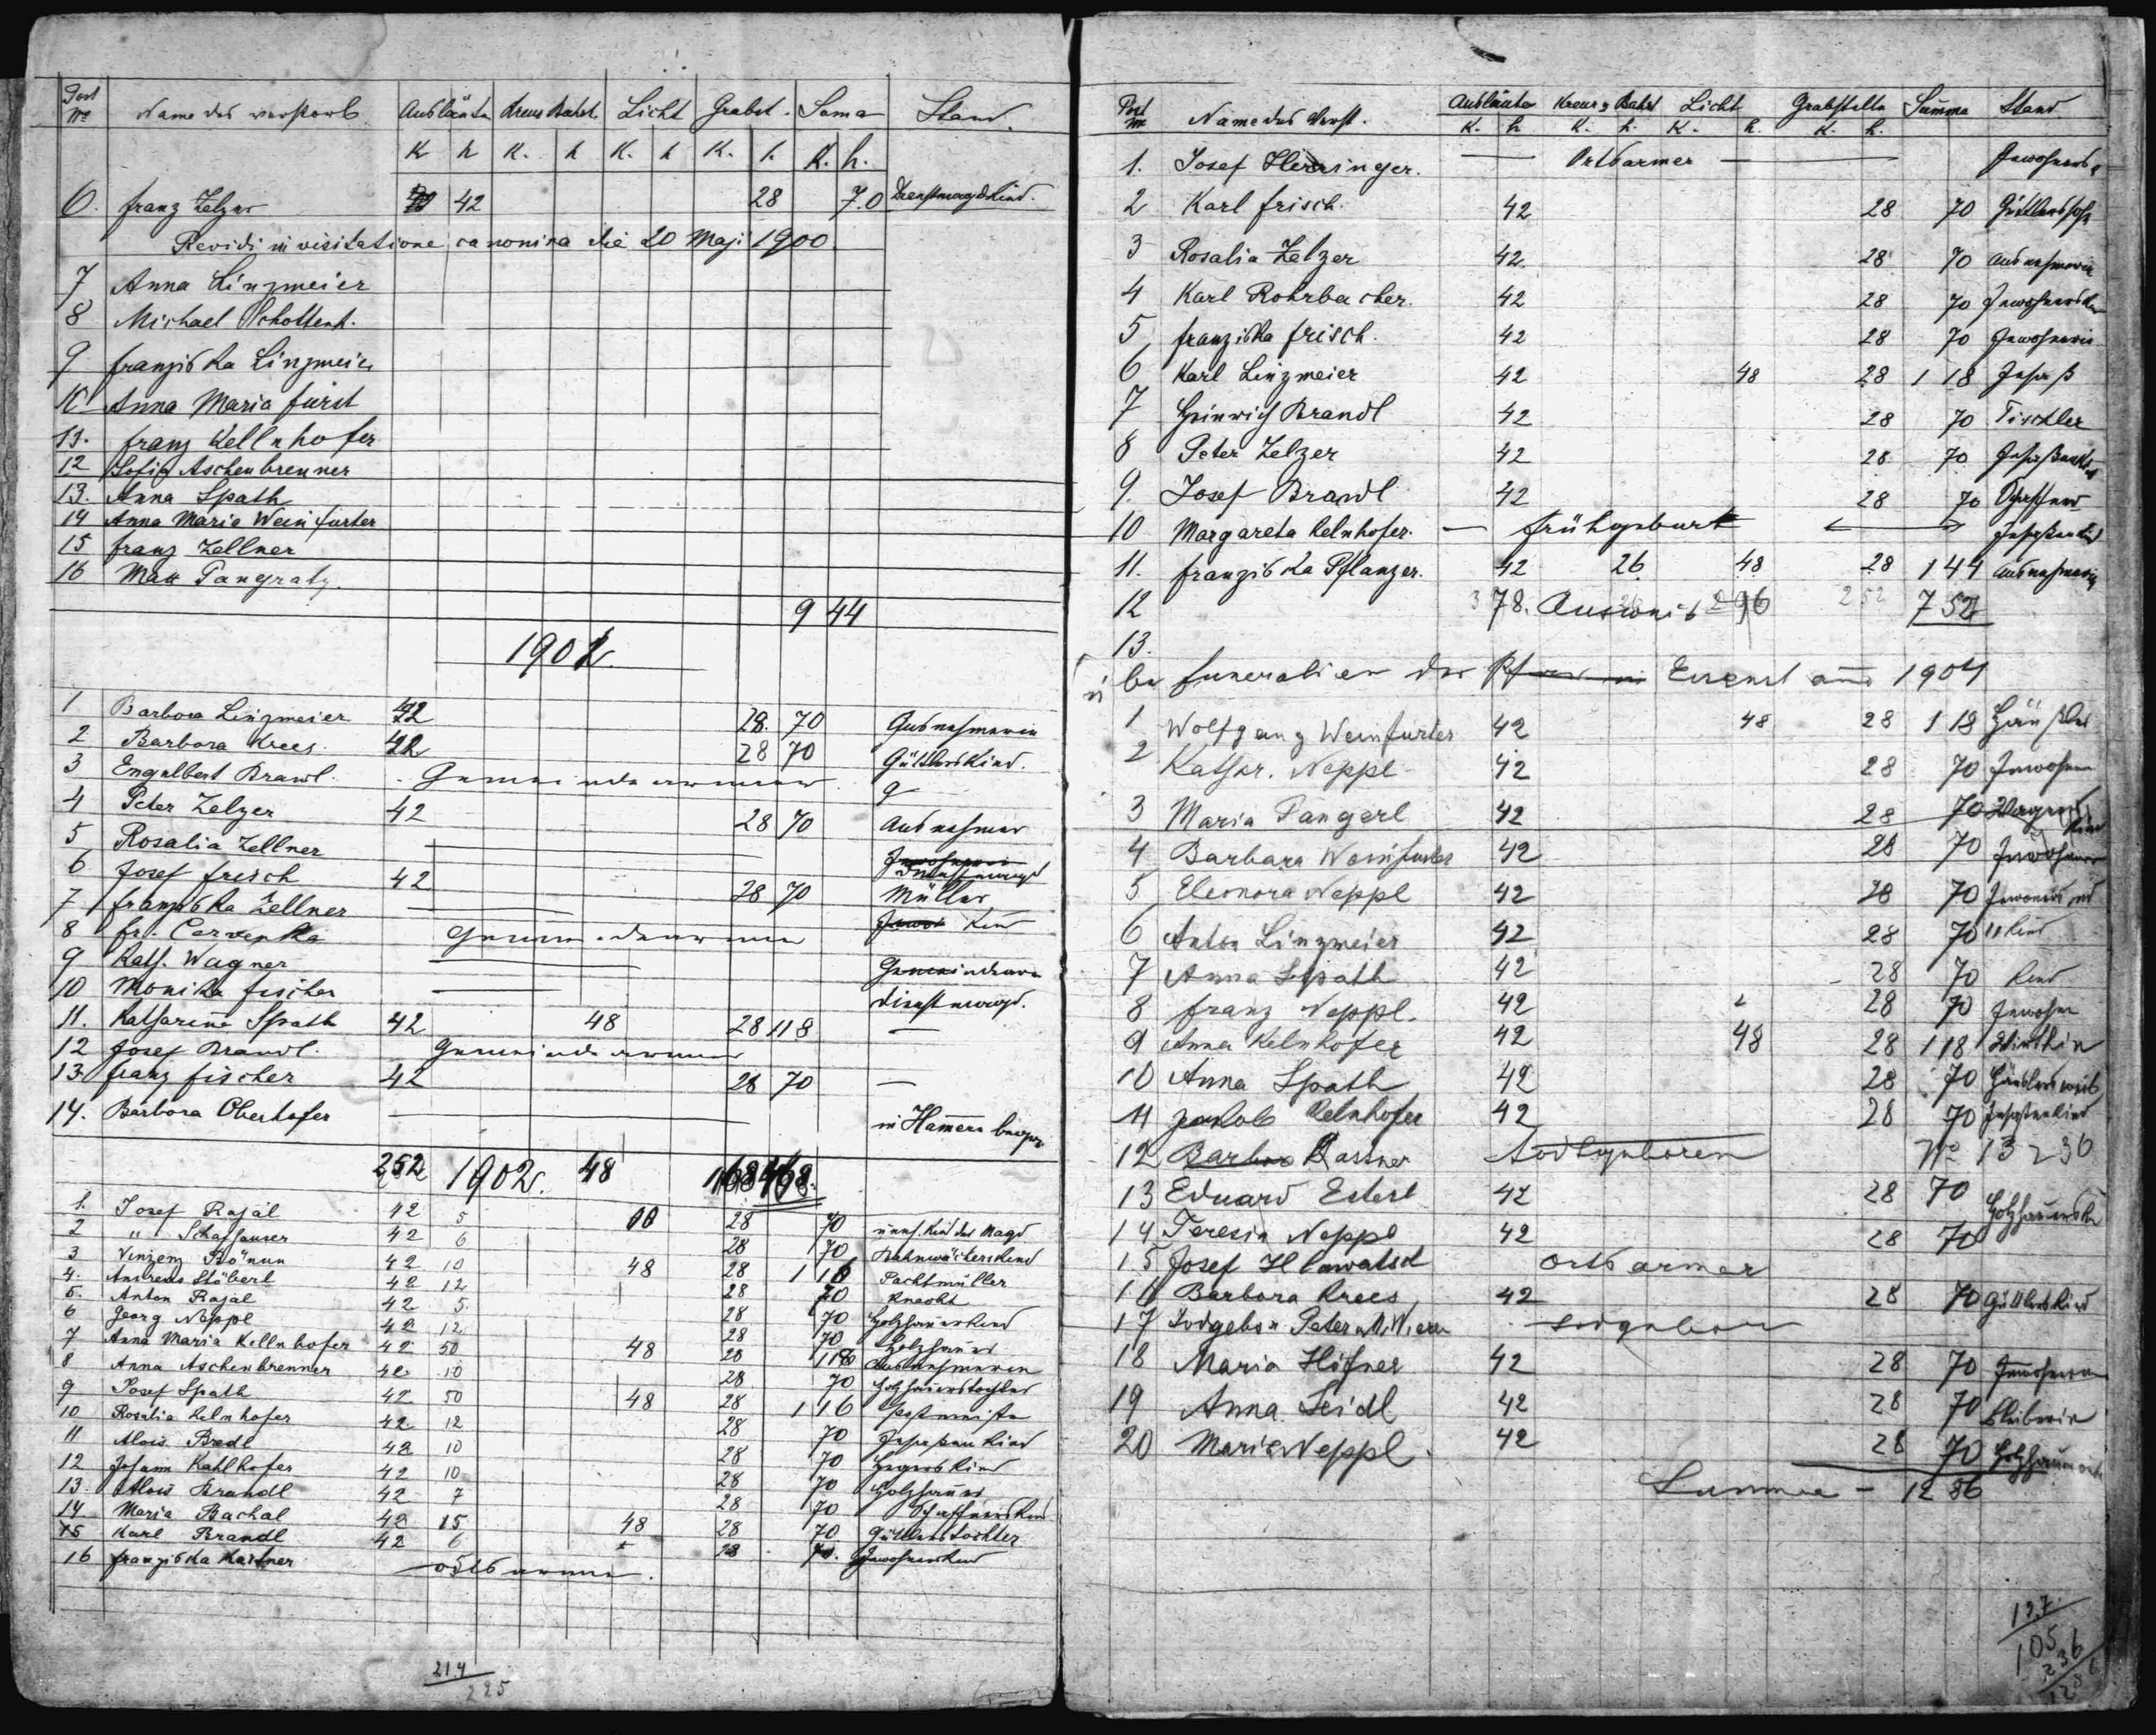 Post No Name des verstorb. Ausläuten Kreuz Bahrt. Licht Grabst. Soma Stand.
K h K. h K. h K. h. K. h.
6. franz Zelzer 42 28 70 Dienstmagdskind.
Revidi in visitatione canonica die 20 Maji 1900.
7 Anna Linzmeier
8 Michael Schottenh.
9 franziska Linzmeier
10 Anna Maria fürst
11. franz Kellnhofer
12 Sofia Aschenbrenner
13. Anna Spath
14 Anna Maria Weinfurter
15 franz Zellner
16 Max Pangratz.
9 44
1901.
1 Barbora Linzmeier 42 28. 70 Ausnahmerin
2 Barbora Krees. 42 28 70 Gütlerskind.
3 Engelbert Brawl. Gemeindearmer
4 Peter Zelzer 42 28 70 Ausnahmer
5 Rosalia Zellner Dienstmagd
6 Josef frisch 42 28 70 Müller
7 franziska Zellner Kind
8 fr. Cervenka Gemeindearmer
9 Kath. Wagner Gemeindearm
10 Monika fischer Dienstmagd.
11. Katharina Spath 42 48 28 118 —
12 Josef Brandl. Gemeindearmer
13. franz fischer 42 28 70 —
14. Barbora Oberhofer in Hamern
252 1902. 48 168 468.
1. Josef Rajal 42 5 28 70 uneh. Kind der Magd
2 " Schafhauser 42 6 28 70 Bahnwächterskind
3 Vinzenz 42 10 48 28 1 18 Pachtmüller
4. Andreas Stöberl 42 12 28 70 Knecht
5. Anton Rajal 42 5 28 70 Holzhauerskind
6 Georg Neppl 42 12 28 70 Holzhauer
7 Anna Maria Kellnhofer 42 50 48 28 118 Ausnahmerin
8 Anna Aschenbrenner 42 10 28 70 Holzhauerstochter
9 Josef Spath 42 50 48 28 1 16 Postmeister
10 Rosalia Kelnhofer 42 12 28 70 Insaßenkind
11 Alois Bredl 42 10 28 70 Hegerskind
12 Johann Kahlhofer 42 10 28 70 Holzhauer
13. Alois Brandl 42 7 28 70 Schaffnerskind
14 Maria Bachal 42 15 48 28 70 Gütlerstochter
15 Karl Brandl 42 6 28 70. Inwohnerskind
16 franziska Kastner ortsarme.
214
225
Post No Name des Verst. Ausläuten Kreuz u Bahrt Licht Grabstelle Summa Stand
K. h. K. h. K. h. K. h.
1. Josef Herringer. — Ortsarmer — Inwohners
2 Karl frisch. 42 28 70 Gütlerssohn
3 Rosalia Zelzer 42 28 70 Ausnahmerin
4 Karl Rohrbacher. 42 28 70 Inwohnerskin
5 franziska frisch. 42 28 70 Inwohnerin
6 Karl Linzmeier 42 48 28 1 18 Insaß
7 Heinrich Brandl 42 28 70 Tischler
8 Peter Zelzer 42 28 70 Insaßenkind
9. Josef Brandl 42 28 70 Schaffner
10 Margareta Kelnhofer. — frühgeburt Insaßenkind
11. franziska Pflanzer. 42 26 48 28 1 44 Ausnahmerin
12 3 78. Ausweis 96 2 52 7 52
13.
über funeralien der Pfarre in Eisenst anno 1904
1 Wolfgang Weinfurter 42 48 28 1 18 Häusler
2 Kathar. Neppl 42 28 70 Inwohner
3 Maria Pangerl 42 28 70 Wagners Kind
4 Barbara Weinfurter 42 28 70 Inwohner
5 Eleonora Neppl 42 28 70
6 Anton Linzmeier 42 28 70 " Kind
7 Anna Spath 42 28 70 Kind
8 franz Neppl. 42 28 70 Inwohner
9 Anna Kelnhofer 42 48 28 1 18 Wirthin
10 Anna Spath 42 28 70 Häuslersweib
11 Jakob Kelnhofer 42 28 70 Insaßenkind
12 Barbora Kastner todtgeboren No 13 236
13 Eduard Esterl 42 28 70 Holzhauerski
14 Teresia Neppl 42 28 70
15 Josef Hlawatsch ortsarmer
16 Barbora Krees 42 28 70 Gütlerskind
17 Todgebor Peter todgeboren
18 Maria Höfner 42 28 70 Inwohnerin
19 Anna Seidl 42 28 70
20 Maria Neppl. 42 28 70
Summa — 12 86
127
105
236
128